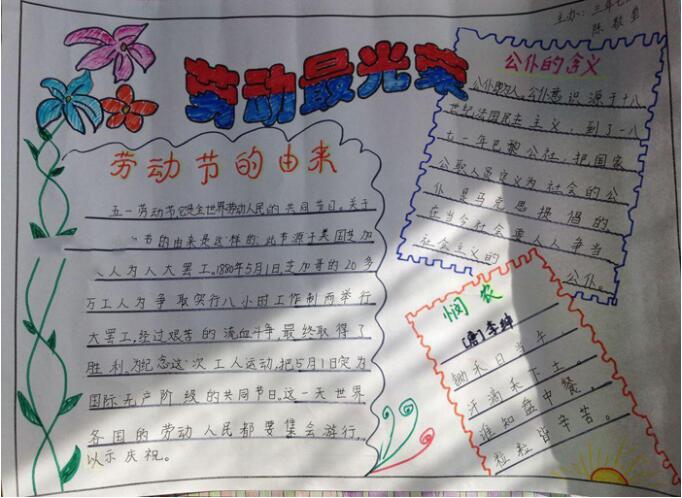 主办：三年七
陈
劳动最光荣
劳动节的由来
五一劳动节它是全世界劳动人民的共同节日。关于
节的由来是这样的：此节源于美国芝加
人为人大罢工。1880年5月1日芝加哥的20多
万工人为争取实行八小时工作制而举行
大罢工，经过艰苦的流血斗争，最终取得了
胜利。为纪念这次工人运动，把5月1日定为
国际无产阶级的共同节日，这一天世界
各国的劳动人民都要集会游行，
以示庆祝。
公仆的含义
公仆为人。公仆意识源于十八
世纪法国民主主义，到了一八
七一年巴黎公社，把国家
公职人员定义为社会的公
仆是马克思提倡的
在当今社会要人人争当
社会主义的公仆。
悯农
[唐]李绅
锄禾日当午，
汗滴禾下土。
谁知盘中餐，
粒粒皆辛苦。